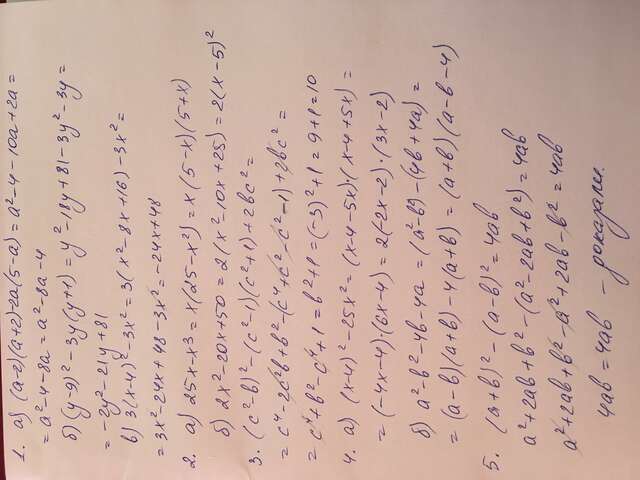 1. а) (a-2)(a+2)-2a(5-a)=a²-4-10a+2a=
=a²-4-8a=a²-8a-4
б) (y-9)²-3y(y+1)=y²-18y+81-3y²-3y=
=-2y²-21y+81
в) 3(x-4)²-3x²=3(x²-8x+16)-3x²=
=3x²-24x+48-3x²=-24x+48
2. а) 25x-x³=x(25-x²)=x(5-x)(5+x)
б) 2x²-20x+50=2(x²-10x+25)=2(x-5)²
3. (c²-b)²-(c²-1)(c²+1)+2bc²=
=c⁴-2c²b+b²-(c⁴+c²-c²-1)+2bc²=
=c⁴+b²-c⁴+1=b²+1=(-3)²+1=9+1=10
4. а) (x-4)²-25x²=(x-4-5x)(x-4+5x)=
=(-4x-4)·(6x-4)=2(-2x-2)·(3x-2)
б) a²-b²-4b-4a=(a²-b²)-(4b+4a)=
=(a-b)(a+b)-4(a+b)=(a+b)(a-b-4)
5. (a+b)²-(a-b)²=4ab
a²+2ab+b²-(a²-2ab+b²)=4ab
a²+2ab+b²-a²+2ab-b²=4ab
4ab=4ab - доказали.